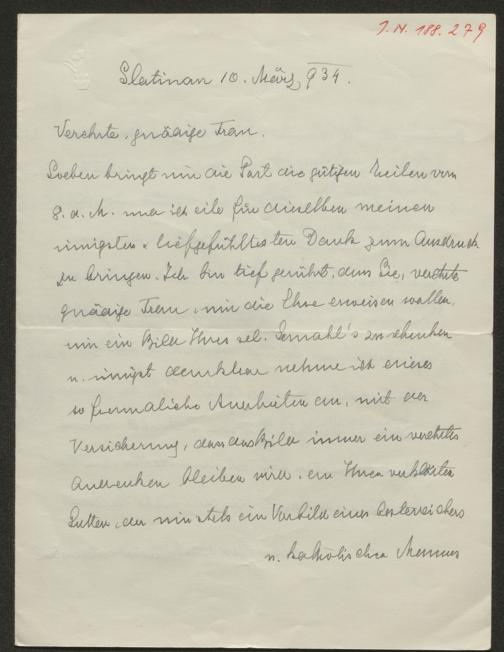 J.N. 188.279
Slatinan 10. März 934.
Verehrte, gnädige Frau.
Soeben bringt mir die Post die gütigen Zeilen vom
8. d. M. und ich eile für dieselben meinen
innigsten & tiefgefühltesten Dank zum Ausdruck
zu bringen. Ich bin tief gerührt, dass Sie, verehrte
gnädige Frau, mir die Ehre erweisen wollen,
mir ein Bild Ihres sel. Gemahl's zu schenken
u. innigst dankbar nehme ich dieses
so freundliche Anerbieten an, mit der
Versicherung, dass das Bild immer ein verehrtes
Andenken bleiben wird, an Ihren verklärten
Gatten, der mir stets ein Vorbild eines Oesterreichers
u. katholischen Mannes